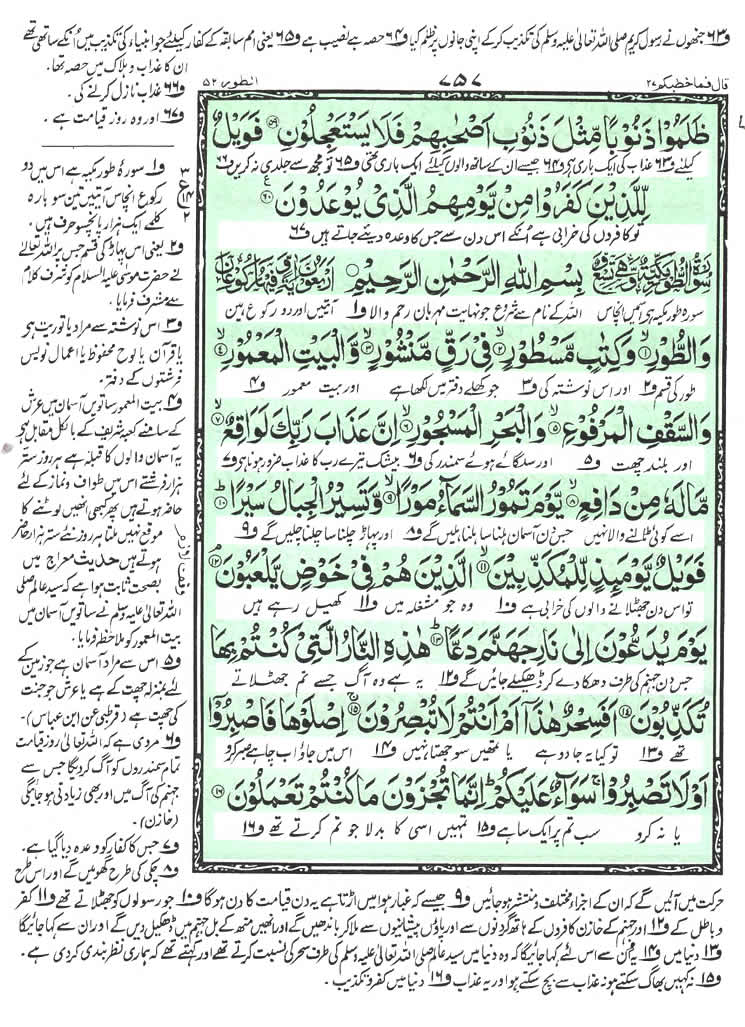 و۶۳ جنھوں نے رسول کریم صلی اللہ تعالیٰ علیہ وسلم کی تکذیب کرکے اپنی جانوں پر ظلم کیا و۶۴ حصہ ہے نصیب ہے و۶۵ یعنی امم سابقہ کے کفار کیلئے جو انبیاء کی تکذیب میں اُنکے ساتھی تھے
ان کا عذاب و ہلاک میں حصہ تھا۔
و۶۶ عذاب نازل کرنے کی۔
و۶۷ اور وہ روز قیامت ہے۔
قال فما خطبکم ۲۷
۷۵۷
الطور ۵۲
ظَلَمُوۡا ذَنُوۡبًا مِّثۡلَ ذَنُوۡبِ اَصۡحٰبِهِمۡ فَلَا يَسۡتَعۡجِلُوۡنِ ﴿۵۹﴾ فَوَيۡلٌ
کیلئے و۶۳ عذاب کی ایک باری ہے و۶۴ جیسے ان کے ساتھ والوں کیلئے ایک باری تھی و۶۵ تو مجھ سے جلدی نہ کریں و۶۶
لِّلَّذِيۡنَ كَفَرُوۡا مِنۡ يَّوۡمِهِمُ الَّذِىۡ يُوۡعَدُوۡنَ ﴿۶۰﴾
تو کافروں کی خرابی ہے اُنکے اس دن سے جس کا وعدہ دیئے جاتے ہیں و۶۷
بِسۡمِ اللّٰهِ الرَّحۡمٰنِ الرَّحِيۡمِ
سورہ طور مکیہ ہے اسمیں انچاس اللہ کے نام سے شروع جو نہایت مہربان رحم والا و۱ آیتیں اور دو رکوع ہیں
وَالطُّوۡرِ ﴿۱﴾ وَكِتٰبٍ مَّسۡطُوۡرٍ ﴿۲﴾ فِىۡ رَقٍّ مَّنۡشُوۡرٍ ﴿۳﴾ وَّالۡبَيۡتِ الۡمَعۡمُوۡرِ ﴿۴﴾
طور کی قسم و۲ اور اس نوشتہ کی و۳ جو کھلے دفتر میں لکھا ہے اور بیت معمور و۴
وَالسَّقۡفِ الۡمَرۡفُوۡعِ ﴿۵﴾ وَالۡبَحۡرِ الۡمَسۡجُوۡرِ ﴿۶﴾ اِنَّ عَذَابَ رَبِّكَ لَوَاقِعٌ ﴿۷﴾
اور بلند چھت و۵ اور سلگائے ہوئے سمندر کی و۶ بیشک تیرے رب کا عذاب ضرور ہونا ہے و۷
مَّا لَهٗ مِنۡ دَافِعٍ ﴿۸﴾ يَّوۡمَ تَمُوۡرُ السَّمَآءُ مَوۡرًا ﴿۹﴾ وَّتَسِيۡرُ الۡجِبَالُ سَيۡرًا ﴿۱۰﴾
اسے کوئی ٹالنے والا نہیں جس دن آسمان ہلنا سا ہلنا ہلیں گے و۸ اور پہاڑ چلنا سا چلنا چلیں گے و۹
فَوَيۡلٌ يَّوۡمَئِذٍ لِّلۡمُكَذِّبِيۡنَ ﴿۱۱﴾ الَّذِيۡنَ هُمۡ فِىۡ خَوۡضٍ يَّلۡعَبُوۡنَ ﴿۱۲﴾
تو اس دن جھٹلانے والوں کی خرابی ہے و۱۰ وہ جو مشغلہ میں و۱۱ کھیل رہے ہیں
يَوۡمَ يُدَعُّوۡنَ اِلٰى نَارِ جَهَنَّمَ دَعًّا ﴿۱۳﴾ هٰذِهِ النَّارُ الَّتِىۡ كُنۡتُمۡ بِهَا
جس دن جہنم کی طرف دھکا دے کر ڈھکیلے جائیں گے و۱۲ یہ ہے وہ آگ جسے تم جھٹلاتے
تُكَذِّبُوۡنَ ﴿۱۴﴾ اَفَسِحۡرٌ هٰذَاۤ اَمۡ اَنۡتُمۡ لَا تُبۡصِرُوۡنَ ﴿۱۵﴾ اِصۡلَوۡهَا فَاصۡبِرُوۡۤا
تھے و۱۳ تو کیا یہ جادو ہے یا تمھیں سوجھتا نہیں و۱۴ اس میں جاؤ اب چاہے صبر کرو
اَوۡ لَا تَصۡبِرُوۡا ۚ سَوَآءٌ عَلَيۡكُمۡ ؕ اِنَّمَا تُجۡزَوۡنَ مَا كُنۡتُمۡ تَعۡمَلُوۡنَ ﴿۱۶﴾
یا نہ کرو سب تم پر ایک سا ہے و۱۵ تمہیں اسی کا بدلا جو تم کرتے تھے و۱۶
و۱ سورۂ طور مکیہ ہے اس میں دو
رکوع انچاس آیتیں تین سو بارہ
کلمے ایک ہزار پانچسو حرف ہیں۔
و۲ یعنی اس پہاڑ کی قسم جس پر اللہ تعالیٰ
نے حضرت موسیٰ علیہ السلام کو شرف کلام
سے مشرف فرمایا۔
و۳ اس نوشتہ سے مراد یا توریت ہے
یا قرآن یا لوح محفوظ یا اعمال نویس
فرشتوں کے دفتر۔
و۴ بیت المعمور ساتویں آسمان میں عرش
کے سامنے کعبہ شریف کے بالکل مقابل ہے
یہ آسمان والوں کا قبلہ ہے ہر روز ستر
ہزار فرشتے اس میں طواف و نماز کے لئے
حاضر ہوتے ہیں پھر کبھی انھیں لوٹنے کا
موقع نہیں ملتا ہر روز نئے ستر ہزار حاضر
ہوتے ہیں حدیث معراج میں
بصحت ثابت ہوا ہے کہ سید عالم صلی
اللہ تعالیٰ علیہ وسلم نے ساتویں آسمان میں
بیت المعمور کو ملاحظہ فرمایا۔
و۵ اس سے مراد آسمان ہے جو زمین کے
لئے بمنزلہ چھت کے ہے یا عرش جو جنت
کی چھت ہے (قرطبی عن ابن عباس)۔
و۶ مروی ہے کہ اللہ تعالیٰ روز قیامت
تمام سمندروں کو آگ کردیگا جس سے
جہنم کی آگ میں اور بھی زیادتی ہو جائیگی
(خازن)۔
و۷ جس کا کفار کو وعدہ دیا گیا ہے۔
و۸ چکی کی طرح گھومیں گے اور اس طرح
حرکت میں آئیں گے کہ ان کے اجزاء مختلف و منتشر ہو جائیں و۹ جیسے کہ غبار ہوا میں اڑتا ہے یہ دن قیامت کا دن ہوگا و۱۰ جو رسولوں کو جھٹلاتے تھے و۱۱ کفر
و باطل کے و۱۲ اور جہنم کے خازن کافروں کے ہاتھ گردنوں سے اور پاؤں پیشانیوں سے ملا کر باندھیں گے اور انھیں منہ کے بل جہنم میں ڈھکیل دیں گے اور ان سے کہا جائیگا
و۱۳ دنیا میں و۱۴ یہ ان سے اس لئے کہا جائیگا کہ وہ دنیا میں سید عالم صلی اللہ تعالیٰ علیہ وسلم کی طرف سحر کی نسبت کرتے تھے اور کہتے تھے کہ ہماری نظر بندی کردی ہے۔
و۱۵ نہ کہیں بھاگ سکتے ہو نہ عذاب سے بچ سکتے ہو اور یہ عذاب و۱۶ دنیا میں کفر و تکذیب۔